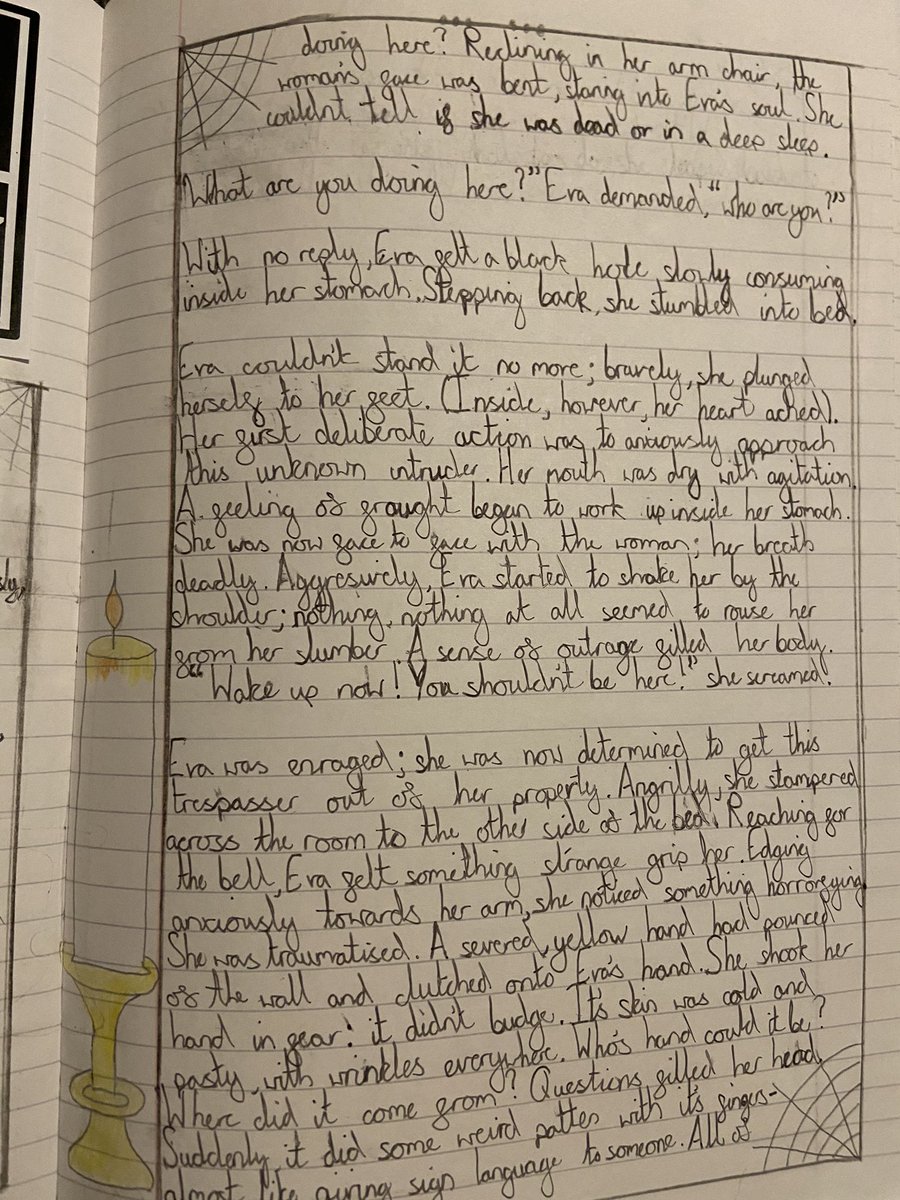 doing here? Reclining in her arm chair, the
woman's face was bent, staring into Eva's soul. She
couldn't tell if she was dead or in a deep sleep.
"What are you doing here?" Eva demanded, "who are you?"
With no reply, Eva felt a black hole slowly consuming
inside her stomach. Stepping back, she stumbled into bed.
Eva couldn't stand it no more; bravely, she plunged
herself to her feet. (Inside, however, her heart ached).
Her first deliberate action was to anxiously approach
this unknown intruder. Her mouth was dry with agitation.
A feeling of frought began to work up inside her stomach.
She was now face to face with the woman; her breath
deadly. Aggresively, Eva started to shake her by the
shoulder; nothing, nothing at all seemed to rouse her
from her slumber. A sense of outrage filled her body.
"Wake up now! You shouldn't be here!" she screamed!
Eva was enraged; she was now determined to get this
trespasser out of her property. Angrilly, she stampered
across the room to the other side of the bed. Reaching for
the bell, Eva felt something strange grip her. Edging
anxiously towards her arm, she noticed something horrorefying
She was traumatised. A severed, yellow hand had pounced
of the wall and clutched onto Eva's hand. She shook her
hand in fear: it didn't budge. It's skin was cold and
pasty, with wrinkles everywhere. Who's hand could it be?
Where did it come from? Questions filled her head.
Suddenly, it did some weird patten with it's fingers-
almost like giving sign language to someone. All of